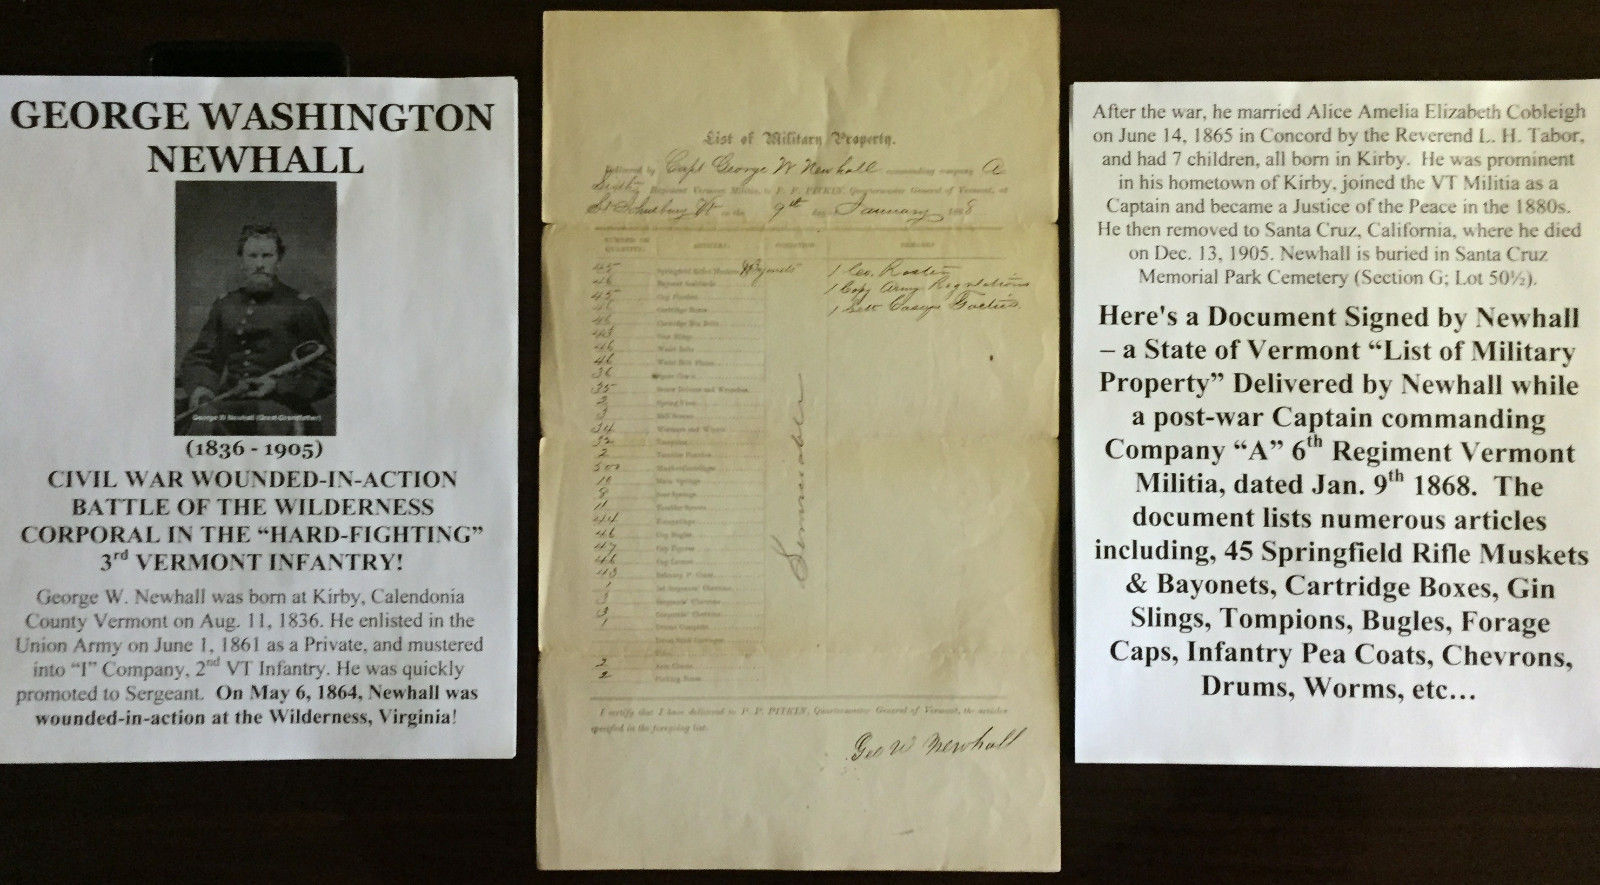 GEORGE WASHINGTON
NEWHALL
George W Newhall (Great-Grandfather)
(1836 - 1905)
CIVIL WAR WOUNDED-IN-ACTION
BATTLE OF THE WILDERNESS
CORPORAL IN THE “HARD-FIGHTING”
3rd VERMONT INFANTRY!
George W. Newhall was born at Kirby, Calendonia
County Vermont on Aug. 11, 1836. He enlisted in the
Union Army on June 1, 1861 as a Private, and mustered
into “I” Company, 2nd VT Infantry. He was quickly
promoted to Sergeant. On May 6, 1864, Newhall was
wounded-in-action at the Wilderness, Virginia!
List of Military Property.
Delivered by Capt George W Newhall commanding company A
Sixth Regiment Vermont Militia, to P. P. PITKIN, Quartermaster General of Vermont, at
St Johnsbury Vt on the 9th day January 1868
NUMBER OR QUANTITY. ARTICLES. CONDITION REMARKS
45 Springfield Rifled Muskets & Bayonets 1 Co. Roster
46 Bayonet Scabbards 1 Copy Army Regulations
45 Cap Pouches 1 Sett Caseys Tactics
Cartridge Boxes
46 Cartridge Box Belts
45 Gun Slings
46 Waist Belts
46 Waist Belt Plates
36
35 Screw Drivers and Wrenches
Spring Vises
Ball Screws
34 Wipers and Worms
32 Tompions
2 Tumbler Punches
500
Main Springs
8 Sear Springs
11 Tumbler Screws
44
46 Cap Bugles
47 Cap Figures
46 Cap Letters
43 Infantry P. Coats
1 1st Sergeants' Chevrons
Sergeants' Chevrons
3 Corporals' Chevrons
1 Drums Complete
2 Arm Chests
2 Packing Boxes
Serviceable
I certify that I have delivered to P. P. PITKIN, Quartermaster General of Vermont, the articles
specified in the foregoing list.
Geo W Newhall
After the war, he married Alice Amelia Elizabeth Cobleigh
on June 14, 1865 in Concord by the Reverend L. H. Tabor,
and had 7 children, all born in Kirby. He was prominent
in his hometown of Kirby, joined the VT Militia as a
Captain and became a Justice of the Peace in the 1880s.
He then removed to Santa Cruz, California, where he died
on Dec. 13, 1905. Newhall is buried in Santa Cruz
Memorial Park Cemetery (Section G; Lot 50½).
Here's a Document Signed by Newhall
– a State of Vermont “List of Military
Property” Delivered by Newhall while
a post-war Captain commanding
Company “A” 6th Regiment Vermont
Militia, dated Jan. 9th 1868. The
document lists numerous articles
including, 45 Springfield Rifle Muskets
& Bayonets, Cartridge Boxes, Gin
Slings, Tompions, Bugles, Forage
Caps, Infantry Pea Coats, Chevrons,
Drums, Worms, etc…